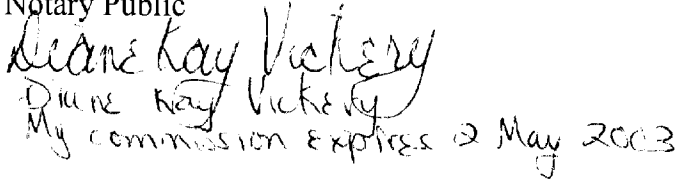 Notary Public
Diane Kay Vickery
Diane Kay Vickery
My commission expires 2 May 2003